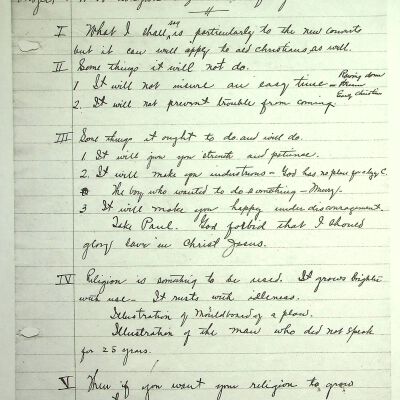 I What I shall say is particularly to the new converts
but it can well apply to old christians as well.
II Some things it will not do.
1 It will not insure an easy time - Paul
2. It will not prevent trouble from coming Early Christians
III Some things it ought to do and will do.
1 It will give you strength and patience.
2. It will make you industrious - God has no place for a lazy C.
The boy who wanted to do something -
3 It will make you happy under discouragement.
Take Paul. God forbid that I should
glory save in Christ Jesus.
IV Religion is something to be used. It grows brighter
with use - It rusts with idleness.
Illustration of Mouldboard of a plow.
Illustration of the man who did not speak
for 25 years.
V Then if you want your religion to grow